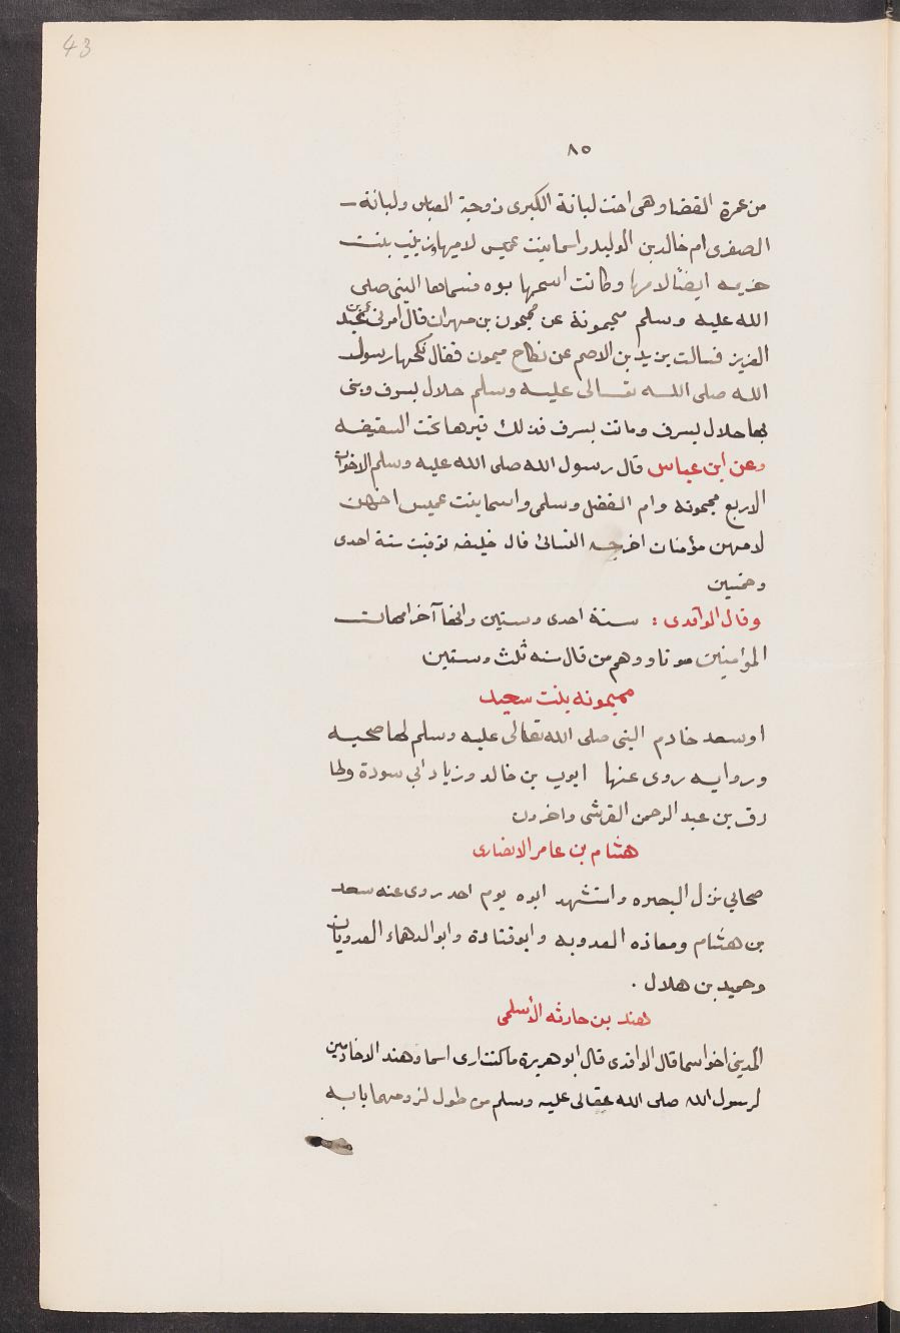 43
٨٥
من عمرة القضا وهى اخت لبانة الكبرى زوجة العباس ولبانة
الصغرى ام خالد بن الوليد واسما بنت عميس لاميها وزينب بنت
خزيمه ايضًا لامها وكانت اسمها بره فسماها النبى صلى
الله عليه وسلم ميمونة عن ميمون بن مهران قال امرنى عبد
العزيز فسالت يزيد بن الاصم عن نكاح ميمون فقال نكحها رسول
الله صلى الله تعالى عليه وسلم حلال بسرف وبنى
بها حلال بسرف وماتت بسرف فذلك قبرها تحت السقيفه
وعن ابن عباس قال رسول الله صلى الله عليه وسلم الاخوات
الاربع ميمونه وام الفضل وسلمى واسما بنت عميس اختهن
لامهن مؤمنات اخرجه النسائ قال خليفه توفيت سنة احدى
وخمسين
وقال الواقدى : سنة احدى وستين وانها آخر امهات
الموامنين موتا ووهم من قال سنه ثلث وستين
ميمونه بنت سعيد
اوسعد خادم النبى صلى الله تعالى عليه وسلم لها صحبه
وروايه روى عنها ايوب بن خالد وزياد ابي سودة وطا
رق بن عبد الرحمن القرشى واخرون
هشام بن عامر الانصارى
صحابي نزل البصره واستشهد ابوه يوم احد روى عنه سعد
بن هشام ومعاذه العدويه وابوقتادة وابو الدهماء العدويان
وحميد بن هلال .
هند بن حارثه الأسلمى
المدينى اخو اسما قال الواقدى قال ابو هريرة ما كنت ارى اسما وهند الاخادمين
لرسول الله صلى الله تعالى عليه وسلم من طول لزومهما بابه